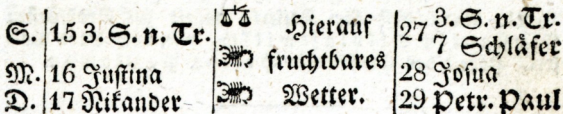 S. 15 3. S. n. Tr. Hierauf 27 3. S. n. Tr.
7 Schläfer
M. 16 Justina fruchtbares 28 Josua
D. 17 Nikander Wetter. 29 Petr. Paul